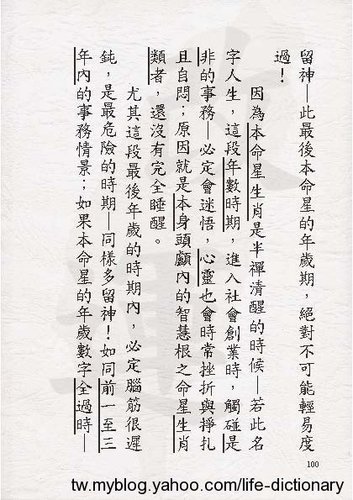 留神—此最後本命星的年歲期，絕對不可能輕易度
過！
因為本命星生肖是半禪清醒的時候—若此名
字人生，這段年數時期，進入社會創業時，觸碰是
非的事務—必定會迷悟，心靈也會時常挫折與掙扎
且自問；原因就是本身頭顱內的智慧根之命星生肖
類者，還沒有完全睡醒。
尤其這段最後年歲的時期內，必定腦筋很遲
鈍，是最危險的時期—同樣多留神！如同前一至三
年內的事務情景；如果本命星的年歲數字全過時—
100
tw.myblog.yahoo.com/life-dictionary